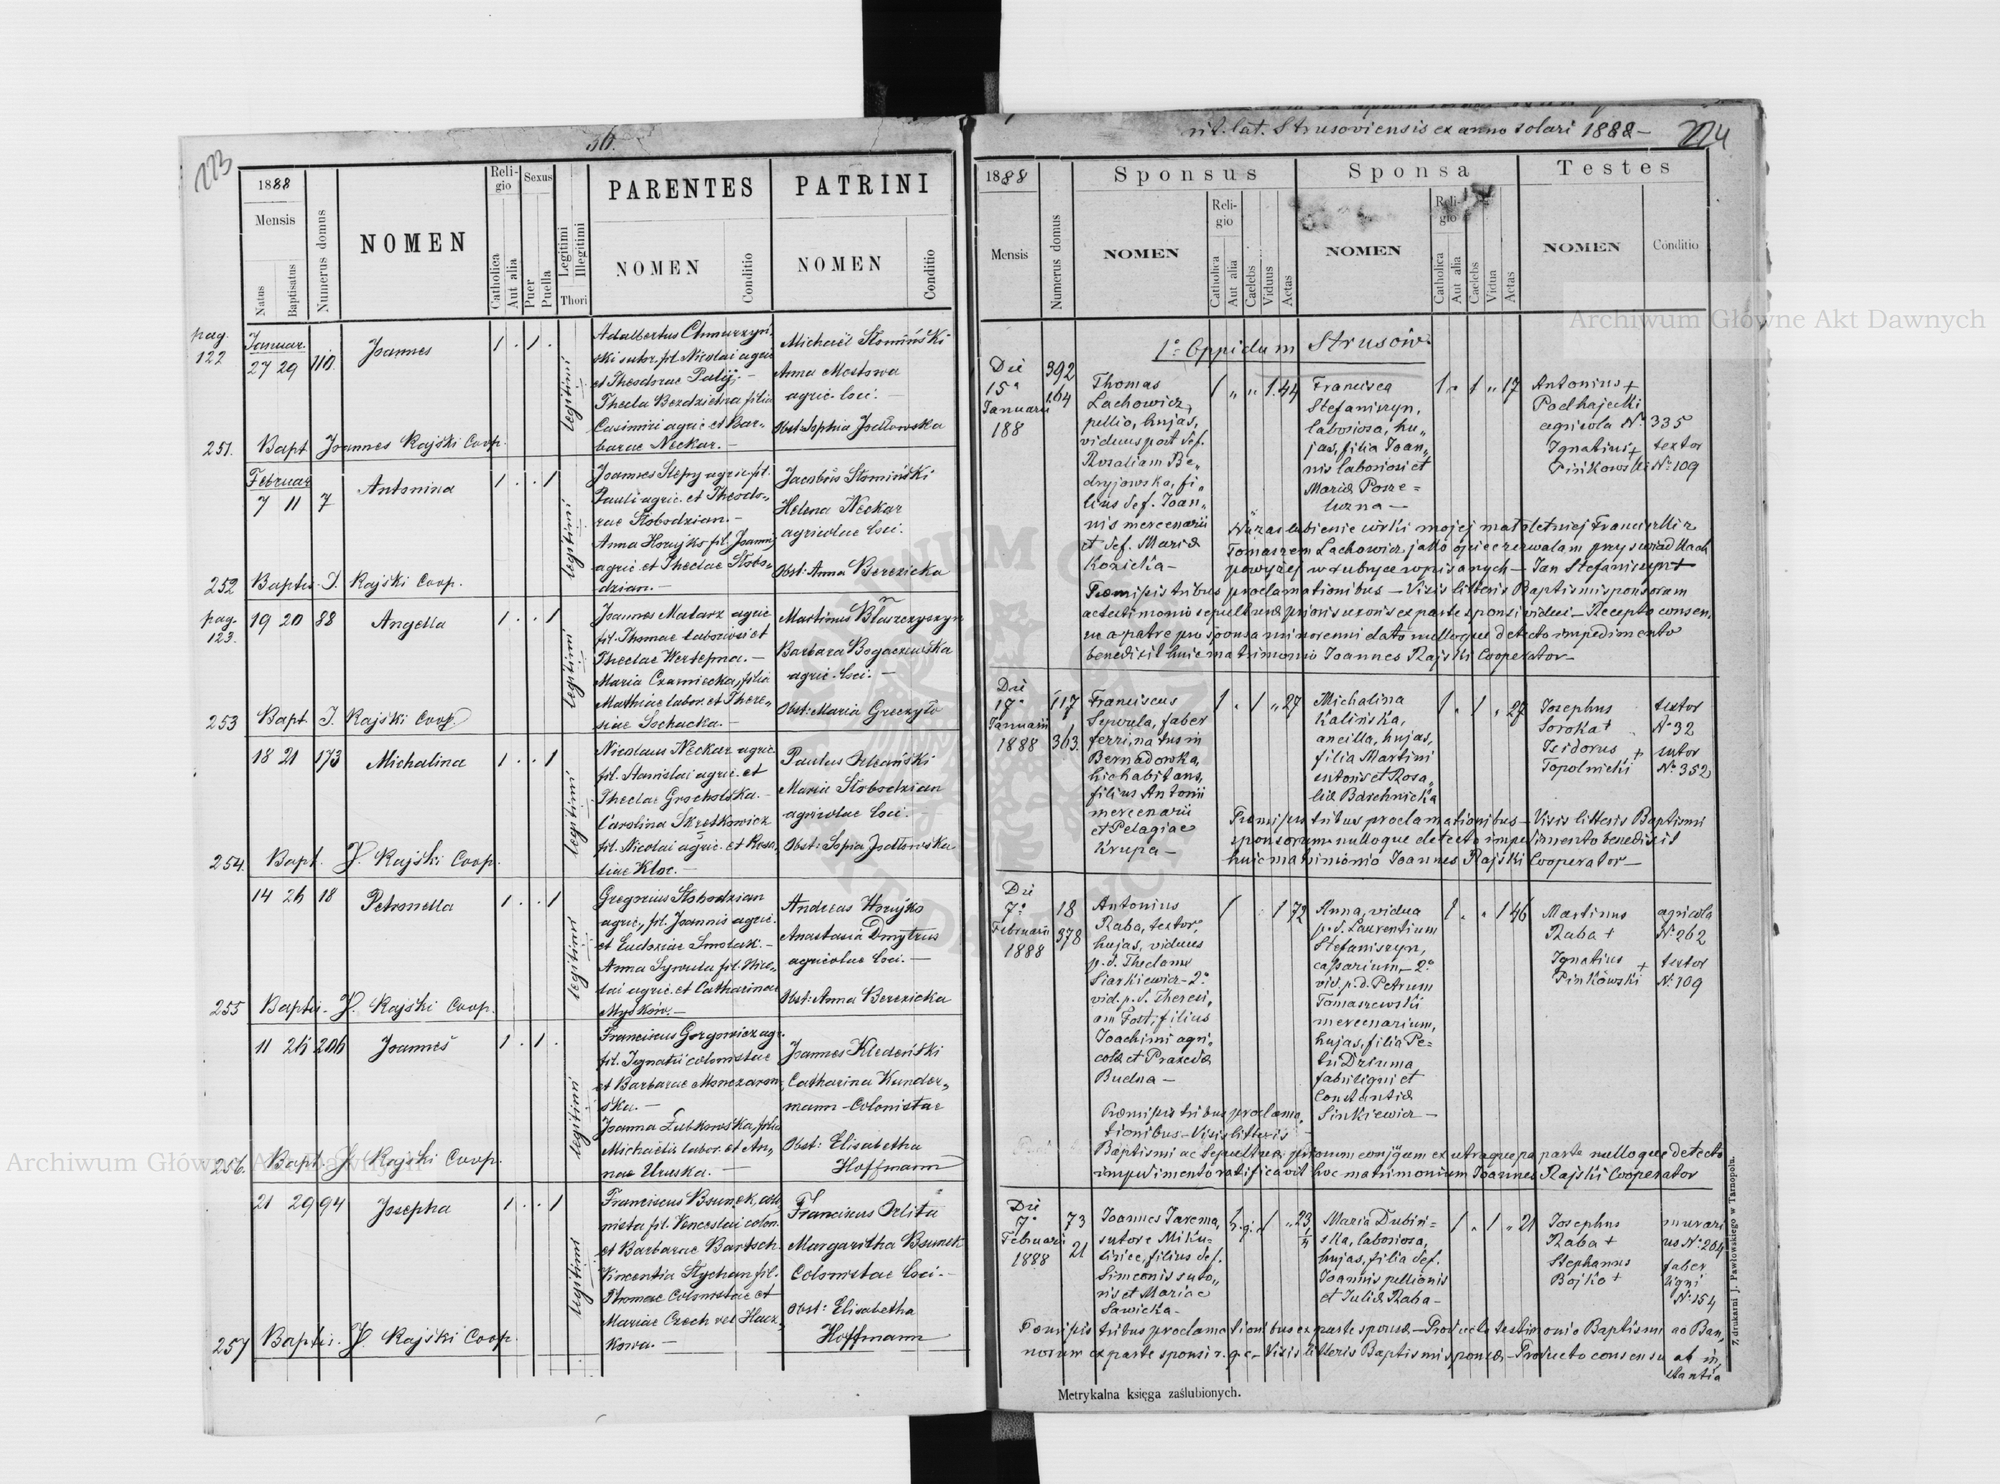 223
36.
1888
Mensis
Natus
Baptisatus
Numerus domus
NOMEN
Religio
Catholica
Aut alia
Sexus
Puer
Puella
Legitimi
Illegitimi
Thori
PARENTES
NOMEN
Conditio
PATRINI
NOMEN
Conditio
pag. 122
Januar.
27 29 110. Joannes 1 . 1 . legitimi
Adalbertus Chmurzyń-
ski sutor, fil. Nicolai agric
et Theodorae Palij. –
Thecla Berdzietna filia
Casimiri agric et Bar-
barae Neckar. –
Michaël Słomiński
Anna Mostowa
agric. loci. –
Obst: Sophia Jodłowska
251. Bapt Joannes Rajski Coop.
Februar
7 11 7 Antonina 1 . . 1 legitimi
Joannes Slepy agric. fil.
Pauli agric. et Theodo-
rae Słobodzian. –
Anna Hornjko fil. Joannis
agric et Theclae Słobo-
dzian. –
Jacobus Słomiński
Helena Neckar
agricolae loci.
Obst: Anna Berezicka
252 Baptis. J. Rajski Coop.
pag. 123.
19 20 88 Angella 1 . . 1 legitimi
Joannes Matarz agric
fil. Thomae laboriosi et
Theclae Wertepna. –
Maria Czarniecka, filia
Mathiae labor. et There-
siae Sochacka. –
Martinus Błaszczyszyn
Barbara Bogaczewska
agric. loci. –
Obst: Maria Greczyło
253 Bapt J. Rajski Coop.
18 21 173 Michalina 1 . . 1 legitimi
Nicolaus Neckar agric
fil. Stanislai agric. et
Theclae Grocholska. –
Carolina Skretkowicz
fil. Nicolai agric. et Rosa
liae Kloc. –
Paulus Orleński
Maria Słobodzian
agricolae loci. –
Obst: Sofia Jodłowska
254. Bapt. J. Rajski Coop.
14 26 18 Petronella 1 . . 1 legitimi
Gregorius Słobodzian
agric., fil. Joannis agric.
et Eudoxiae Smolak. –
Anna Sywula fil. Nico-
lai agric. et Catharinae
Myśków. –
Andreas Hornjko
Anastasia Dmytrus
agricolae loci. –
Obst: Anna Berezicka
255 Baptis. J. Rajski Coop.
11 26 206 Joannes 1 . 1 . legitimi
Franciscus Gorgowicz agr.
fil. Ignatii colonistae
et Barbarae Monczarow
ska. –
Joanna Żubkowska, filia
Michaëlis labor. et An-
nae Uruska. –
Joannes Kledeński
Catharina Kunder-
mann – Colonistae
Obst: Elisabetha
Hoffmann
256. Bapt J. Rajski Coop.
21 29 94 Josepha 1 . . 1 legitimi
Franciscus Bsunek, colo-
nista fil. Venceslai colon.
et Barbarae Bartsch.
Vincentia Stychan fil.
Thomae Colonistae et
Mariae Czech vel Hacz-
kowa. –
Franciscus Orlita
Margaritha Bsunek
Colonistae loci. –
Obst: Elisabetha
Hoffmann
257 Baptis. J. Rajski Coop.
rit. lat. Strusoviensis ex anno solari 1888 – 224
1888
Mensis
Numerus domus
Sponsus
NOMEN
Religio
Catholica
Aut alia
Caelebs
Viduus
Aetas
Sponsa
NOMEN
Religio
Catholica
Aut alia
Caelebs
Vidua
Aetas
Testes
NOMEN
Conditio
Archiwum Główne Akt Dawnych
1º Oppidum Strusów.
Die
15ª
Januarii
188
392
164
Thomas
Lachowicz,
pellio, hujas,
viduus post def.
Rosaliam Be-
dryjowska, fi-
lius def. Joan-
nis mercenarii
et def. Mariæ
Kozicka –
1 „ „ 1. 44
Francisca
Stefaniszyn,
laboriosa, hu-
jas, filia Joan-
nis laboriosi et
Mariæ Posze-
luzna –
1 „ 1 „ 17
Antonius +
Podhajecki
agricola Nº 335
Ignatius + textor
Pińkowski Nº 109
Na zaslubienie córki mojej małoletniej Franciszki z
Tomaszem Lachowicz jako opiec zezwalam przy swiadkach
powyżej w rubryce wpisanych – Jan Stefaniszyn +
Præmissis tribus proclamationibus – Visis litteris Baptismi sponsorum
ac testimonio sepulturæ prioris uxoris ex parte sponsi vidui – Recepto consen-
su a patre pro sponsa minorenni dato nulloque detecto impedimento
benedixit huic matrimonio Joannes Rajski Cooperator –
Die
17ª
Januarii
1888
117
363.
Franciscus
Sywula, faber
ferri, natus in
Bernadowka,
hic habitans,
filius Antonii
mercenarii
et Pelagiae
Krupa –
1 „ 1 „ 27
Michalina
Kalińska,
ancilla, hujas,
filia Martini
sutoris et Rosa-
liæ Barchnicka
1 „ 1 „ 27
Josephus textor
Soroka + Nº 32
Isidorus + sutor
Topolnicki Nº 352
Præmissis tribus proclamationibus – Visis litteris Baptismi
sponsorum nulloque detecto impedimento benedixit
huic matrimonio Joannes Rajski Cooperator –
Die
7ª
Februarii
1888
18
378
Antonius
Raba, textor,
hujas, viduus
p. d. Theclam
Siarkiewicz – 2º
vid. p. d. Theresi-
am Fort, filius
Joachimi agri-
colæ et Praxedæ
Budna –
1 1 72
Anna, vidua
p. d. Laurentium
Stefaniszyn,
casarium – 2º
vid. p. d. Petrum
Tomaszewski
mercenarium,
hujas, filia Pe-
tri Dziuma
fabri ligni et
Constantiæ
Sinkiewicz –
1 „ „ 1 46
Martinus agricola
Raba + Nº 262
Ignatius + textor
Pińkowski Nº 109
Præmissis tribus proclama-
tionibus – Visis litteris
Baptismi ac Sepulturæ priorum conjugum ex utraque parte nulloque detecto
impedimento ratificavit hoc matrimonium Joannes Rajski Cooperator
Die
7ª
Februarii
1888
73
21
Joannes Jarema,
sutor e Miku-
liniec, filius def.
Simeonis suto-
ris et Mariae
Sawicka –
r. g. 1 „ 23
Maria Dubiń-
ska, laboriosa,
hujas, filia def.
Joannis pellionis
et Juliæ Raba –
1 „ 1 „ 21
Josephus murari
Raba + us Nº 264
Stephanus faber
Bojko + ligni
Nº 154
Præmissis tribus proclamationibus ex parte sponsæ – Producto testimonio Baptismi ac Ban-
norum ex parte sponsi r. g. c. – Visis litteris Baptismi sponsæ – Producto consensu ab in-
stantia
Metrykalna księga zaślubionych.
Z drukarni J. Pawłowskiego w Tarnopolu.
Archiwum Główne Akt Dawnych